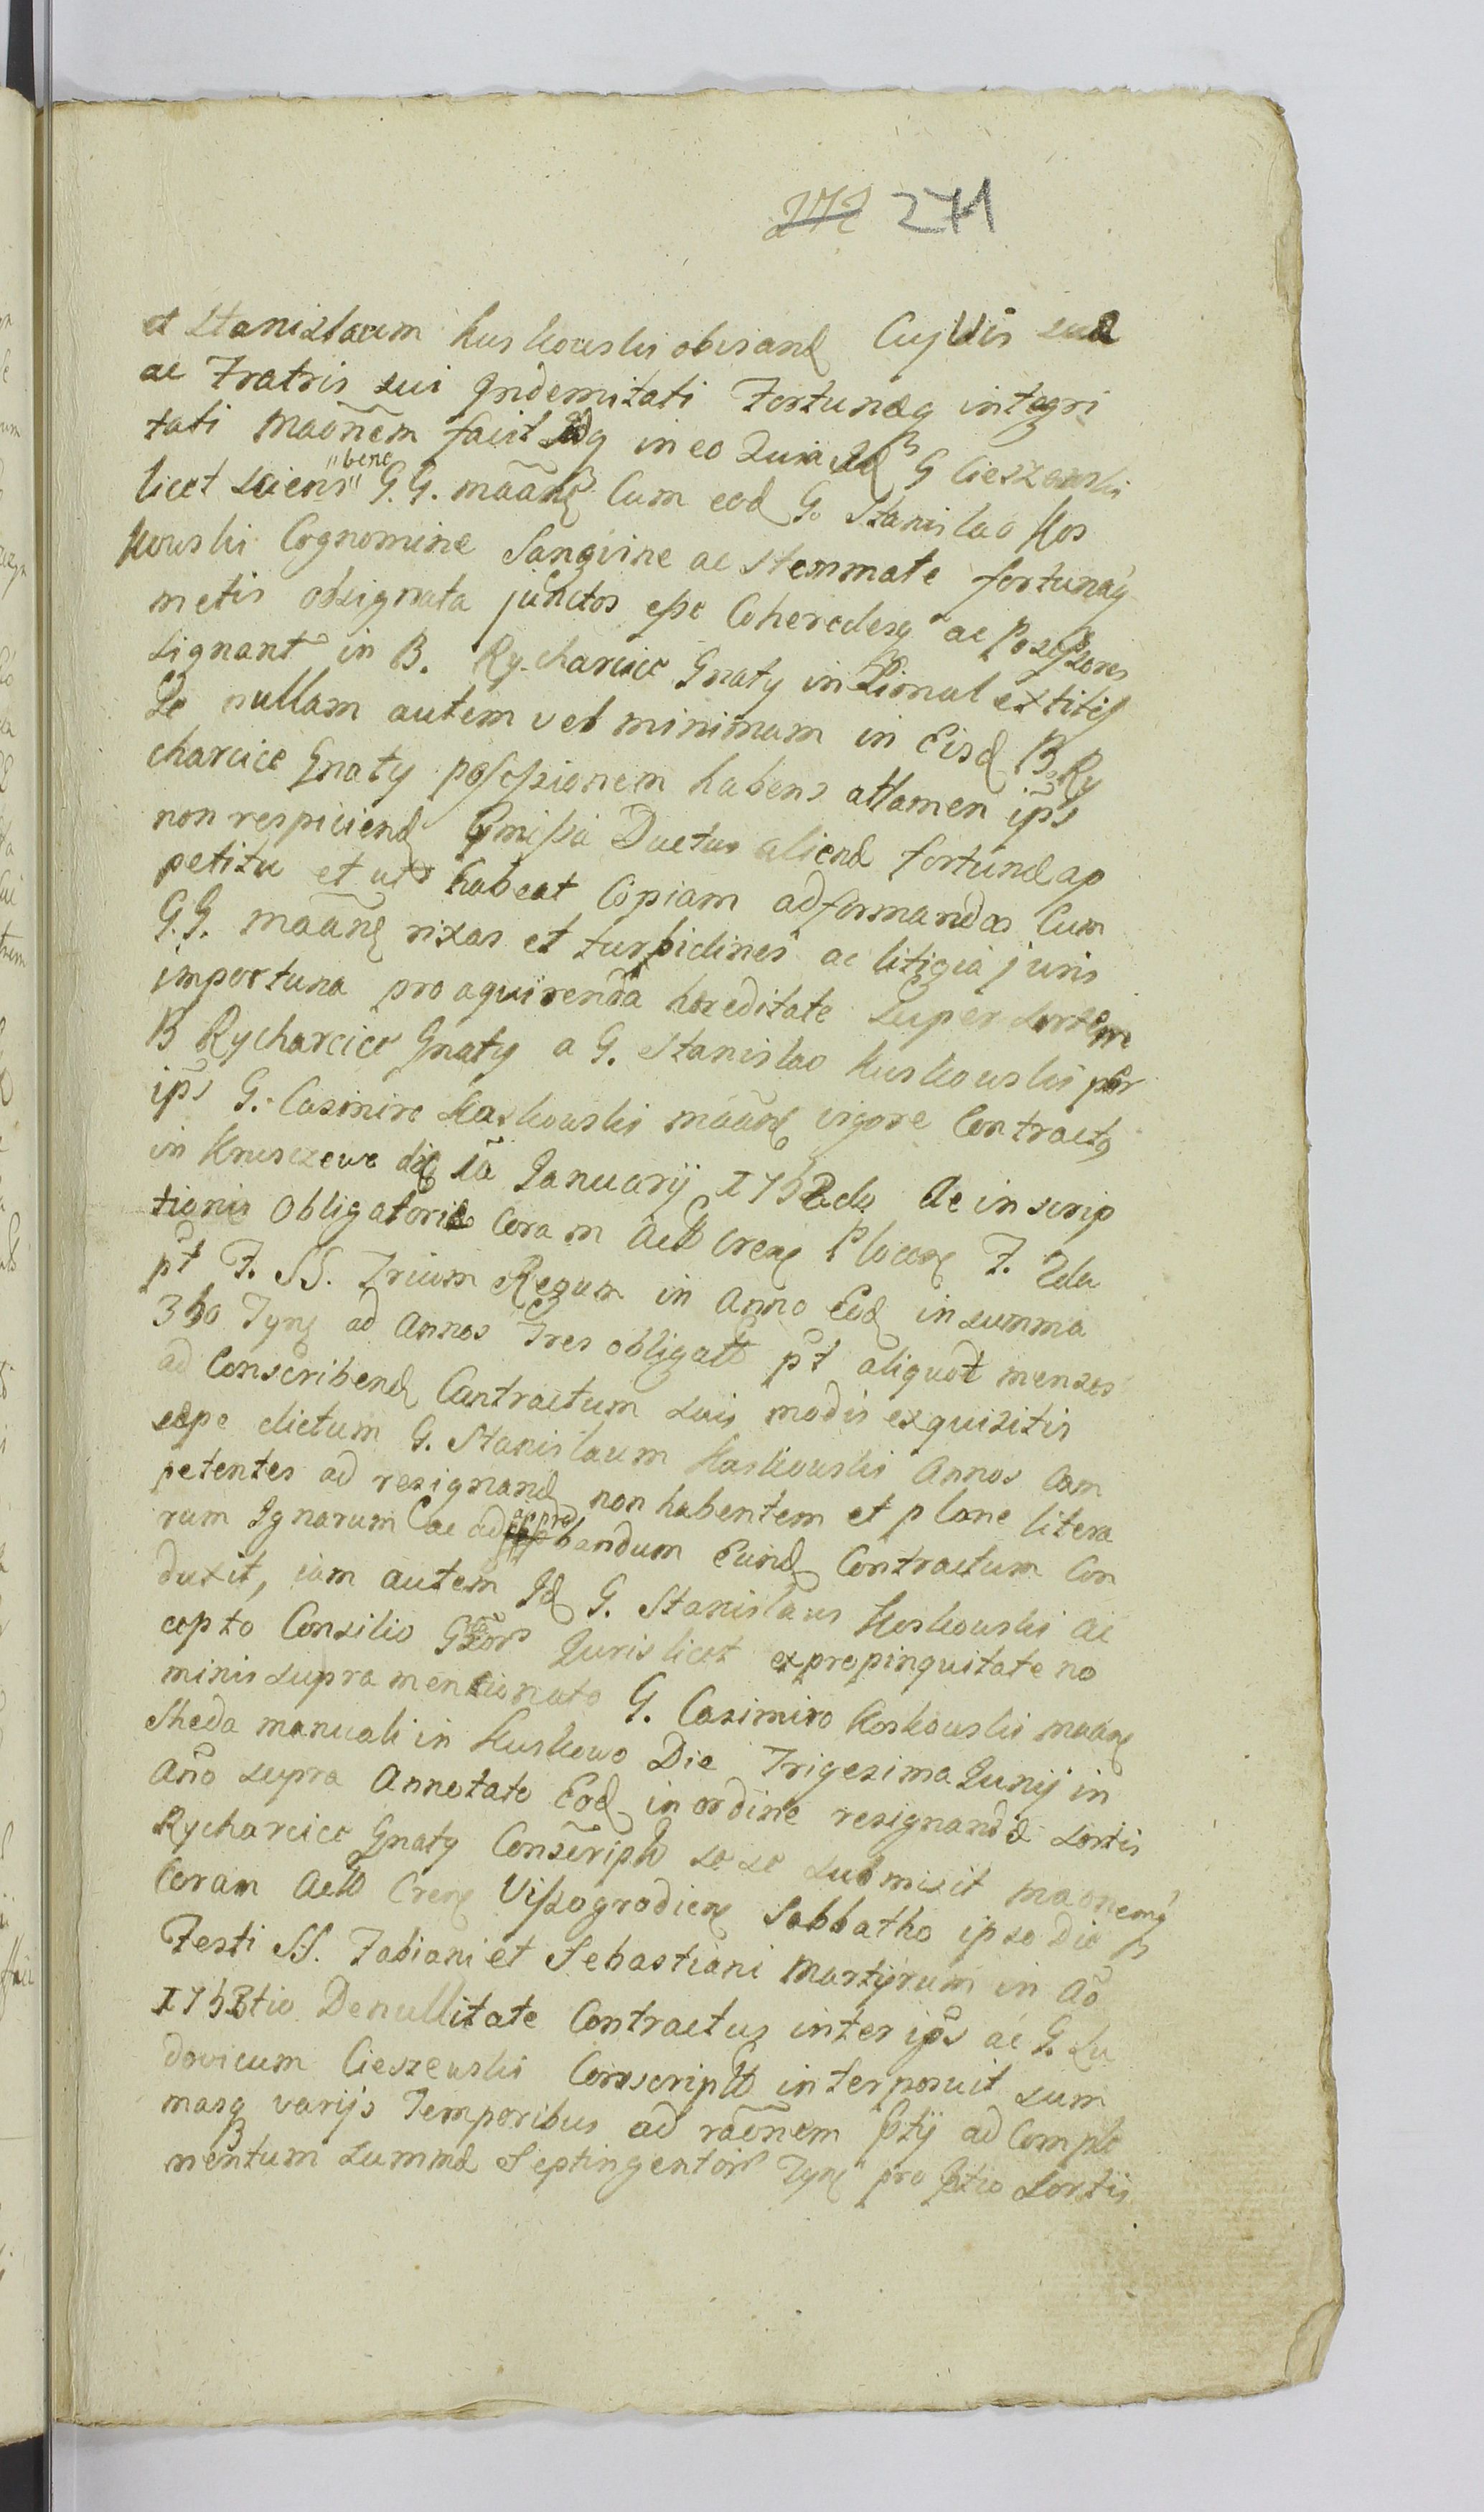 272 271
et Stanislaum Kuskowski obisand Cujus sua
ac Fratris sui Indemnitati Fortunæq integri
tati maõnem facit idq in eo Quia Id G Cieszewski
licet sciens "bene" G.G. maãne Cum eod G. Stanislao Kos
kowski Cognomine Sangvine ac Stemmate fortunaq
metis obsignata junctos esse Coheredesq ac Possessores
signant in B. Rycharcice Gnaty insimul extitiss
Se nullam autem vel minimam in Eisd B. Ry
charcice Gnaty possessionem habens attamen ips
non respiciend Ductus aliena fortunæ ap
petitu et ut habeat Copiam adformandas Cum
G.G. maãne rixas et turpidines ac litigia juris
importuna pro aquirenda hæreditate super sortem
B Rycharcice Gnaty a G. Stanislao Kuskowski per
ips G. Casimiro Kaskowski maãne vigore Contractus
in Kruszewe die 1ã Januarij 1752do Ac inscrip
tionis Obligatoriæ Coram Actt Crene Plocene F. 2da
pt F. SS. Trium Regum in Anno Eod in summa
350 Tyne ad Annos Tres obligatt pt aliquot menses
ad Conscribend Contractum suis modis exquisitis
sæpe dictum G. Stanislaum Kaskowski Annos Com
petentes ad resignand non habentem et plane litera
rum Ignarum ac ad ac pro bandum Eund Contractum Con
duxit, iam autem Id G. Stanislaus Koskowski ac
cepto Consilio Juris licet ex propinquitate no
minis supra mentionato G. Casimiro Koskowski maãne
Sheda manuali in Kuskowo Die Trigesima Junij in
Año supra Annotato Eod in ordine resignandæ sortis
Rycharcice Gnaty Conscriptt se se submisit maonemq
Coram Actt Crene Vissogrodiene Sabbatho ipso Die
Festi SS. Fabiani et Sebastiani Martyrum in Aõ
1753tio De nullitate Contractus inter ips ac G. Lu
dovicum Cieszewski Conscriptt interposuit sum
masq varijs Temporibus ad raõnem ptij ad Comple
mentum summæ Septingentor Tyne pro ptio Sortis